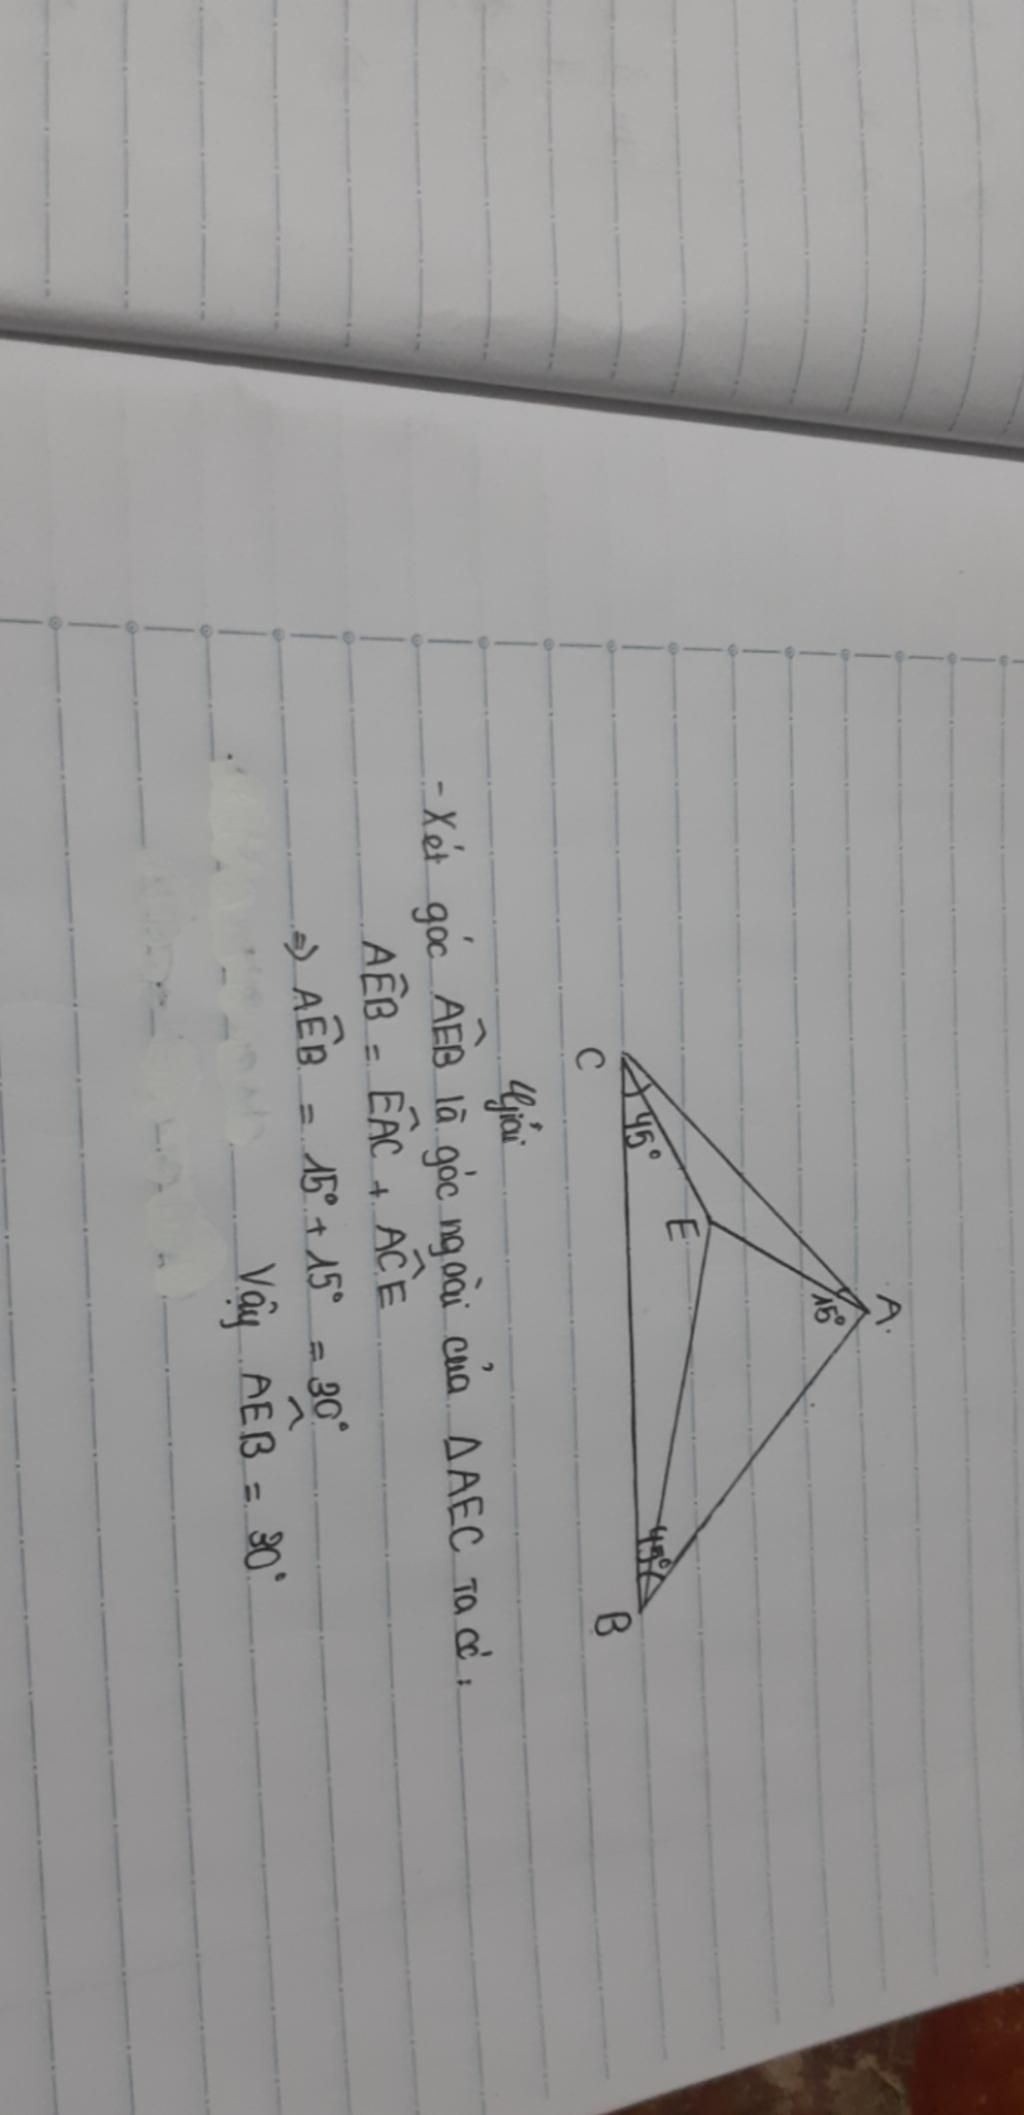 A.
15°
E
C
45°
45°
B
Giải
- Xét góc AEB là góc ngoài của ΔAEC Ta có:
AÊB = EÂC + AĈE
=> AÊB = 15° + 15° = 30°
Vậy AEB = 30°